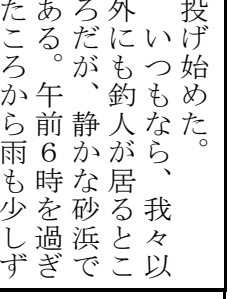 投げ始めた。
いつもなら、我々以
外にも釣人が居るとこ
ろだが、静かな砂浜で
ある。午前６時を過ぎ
たころから雨も少しず